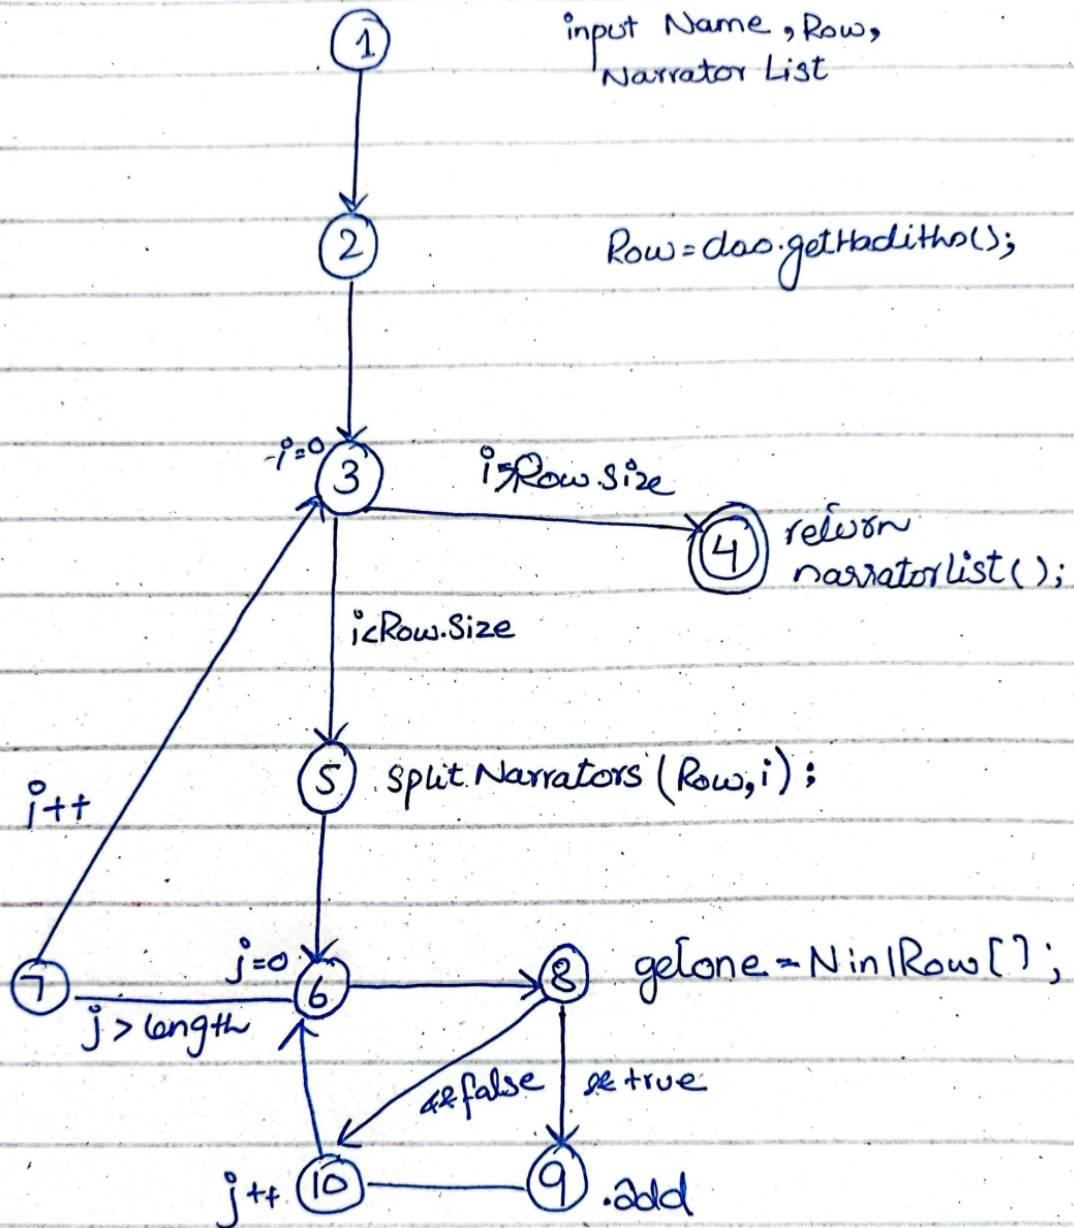 1
input Name, Row,
Narrator List
2
Row=dao.getHadiths();
i=0
3
i>Row.size
4
return
narratorlist();
i<Row.Size
5
split.Narrators (Row,i);
i++
7
j=0
6
8
getone = NinlRow[];
j > length
false
true
j++
10
9
.add